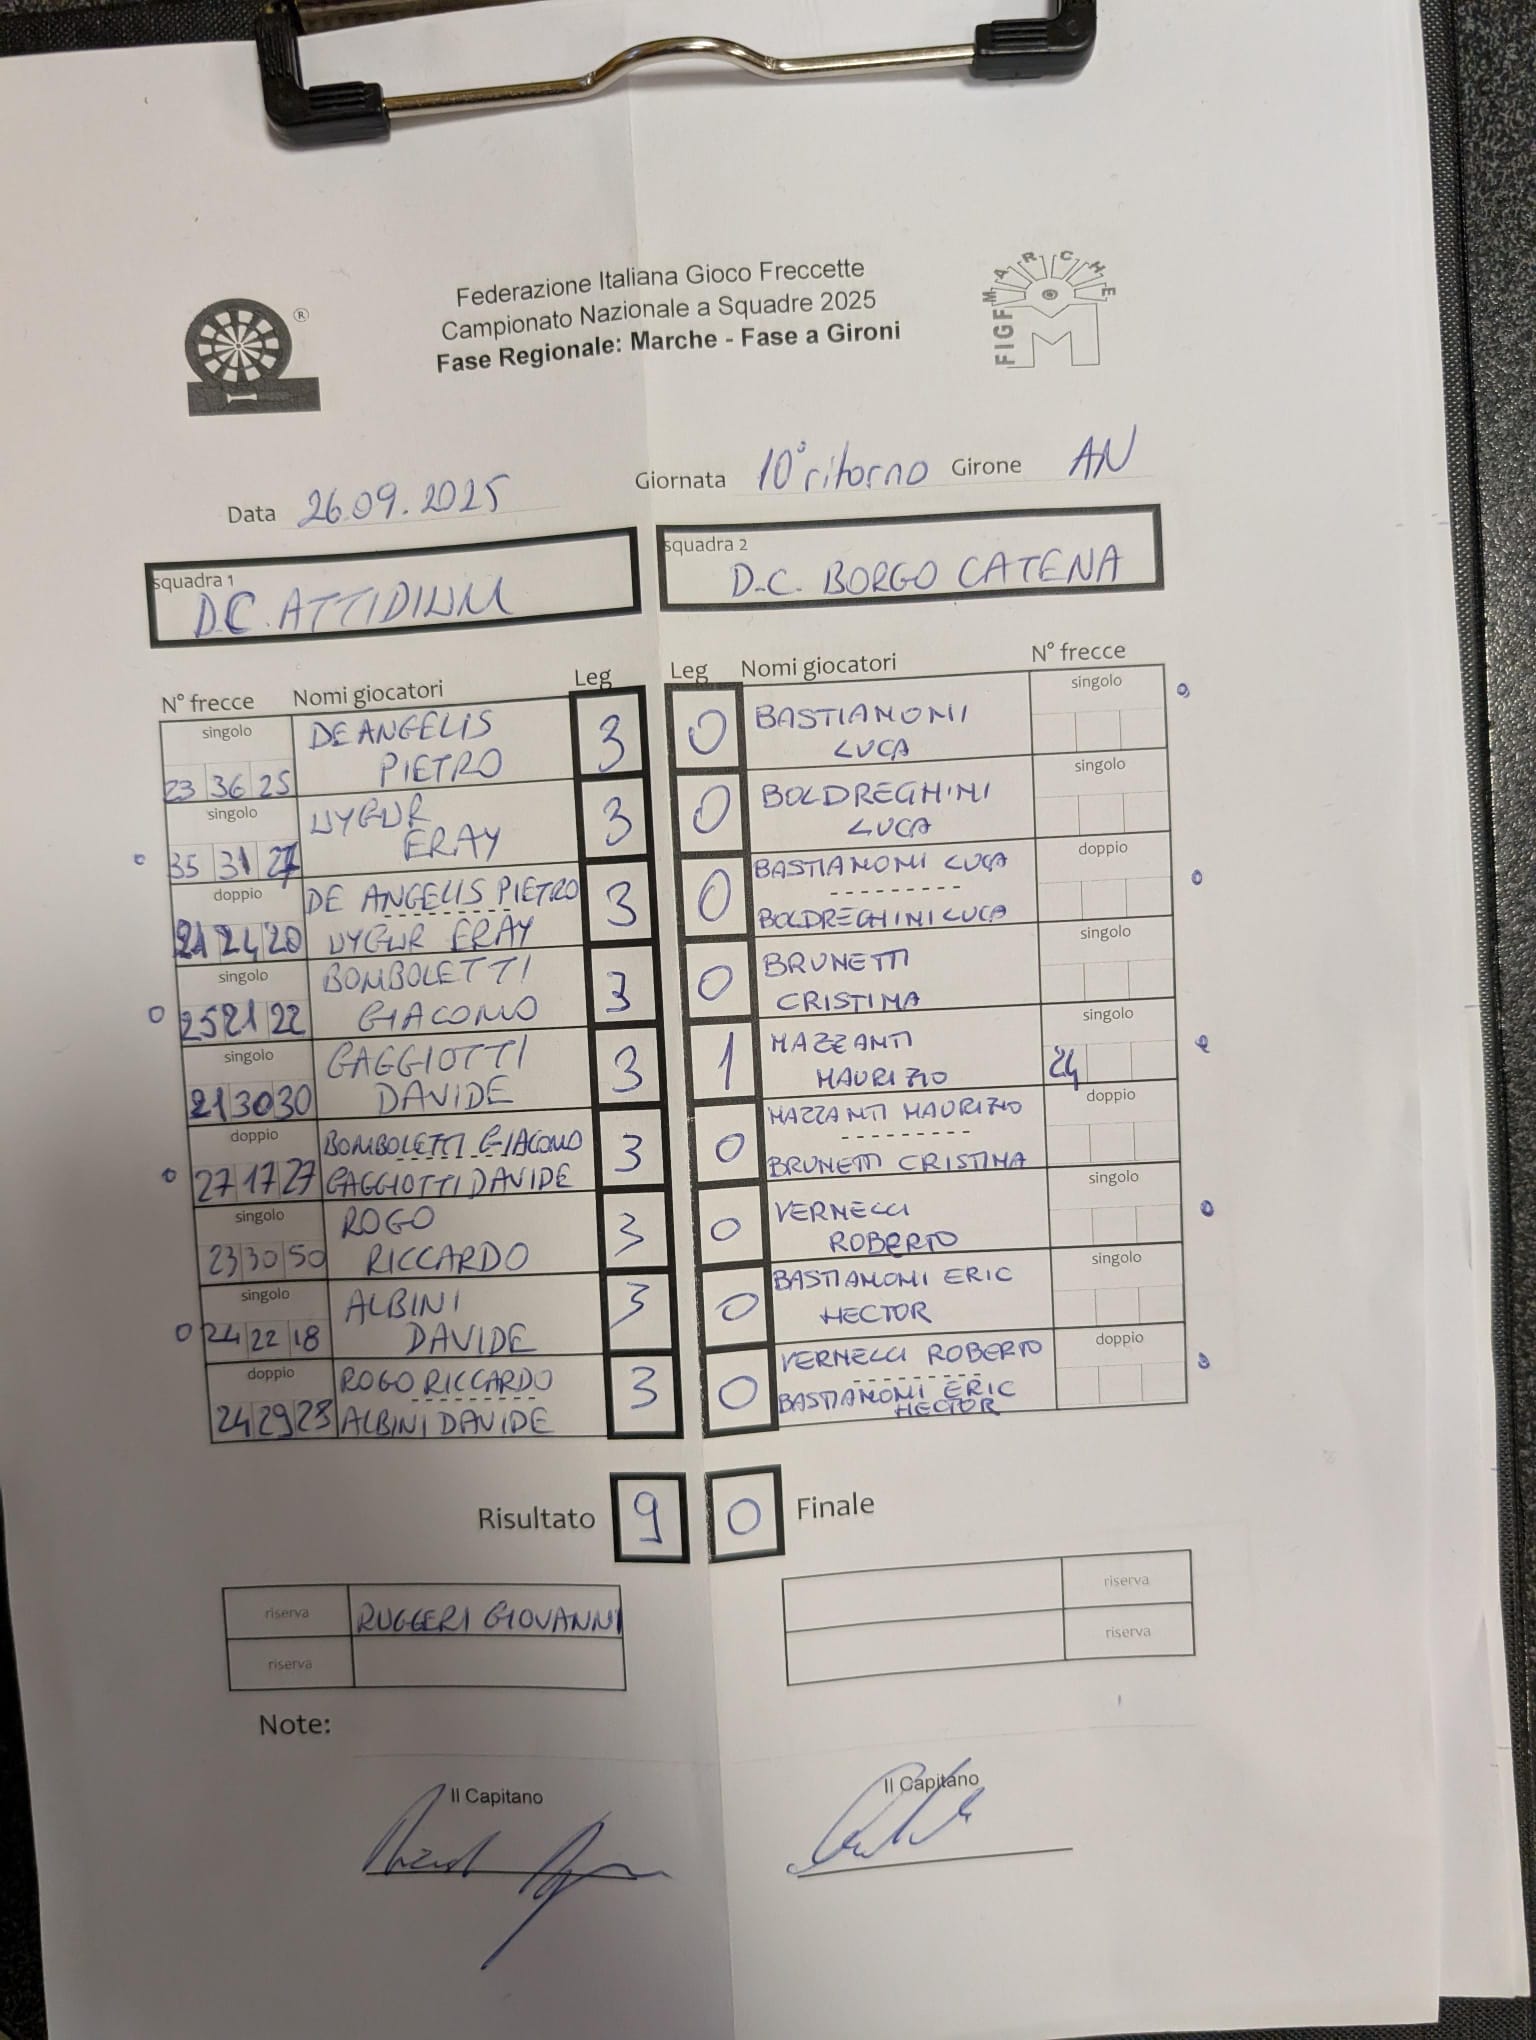 Federazione Italiana Gioco Freccette
Campionato Nazionale a Squadre 2025
Fase Regionale: Marche - Fase a Gironi
®
FIGF MARCHE
M
Data 26.09.2025 Giornata 10° ritorno Girone AN
squadra 1
D.C. ATTIDIUM
squadra 2
D.C. BORGO CATENA
N° frecce Nomi giocatori Leg Leg Nomi giocatori N° frecce
singolo DE ANGELIS 3 0 BASTIANONI singolo
23 36 25 PIETRO LUCA
singolo UYGUR 3 0 BOLDREGHINI singolo
35 31 27 ERAY LUCA
doppio DE ANGELIS PIETRO 3 0 BASTIANONI LUCA doppio
21 24 20 UYGUR ERAY BOLDREGHINI LUCA
singolo BOMBOLETTI 3 0 BRUNETTI singolo
25 21 22 GIACOMO CRISTINA
singolo GAGGIOTTI 3 1 MAZZANTI singolo
21 30 30 DAVIDE MAURIZIO 24
doppio BOMBOLETTI GIACOMO 3 0 MAZZANTI MAURIZIO doppio
27 17 27 GAGGIOTTI DAVIDE BRUNETTI CRISTINA
singolo ROGO 3 0 VERNELLI singolo
23 30 50 RICCARDO ROBERTO
singolo ALBINI 3 0 BASTIANONI ERIC singolo
24 22 18 DAVIDE HECTOR
doppio ROGO RICCARDO 3 0 VERNELLI ROBERTO doppio
24 29 23 ALBINI DAVIDE BASTIANONI ERIC
HECTOR
Risultato 9 0 Finale
riserva RUGGERI GIOVANNI riserva
riserva riserva
Note:
Il Capitano Il Capitano